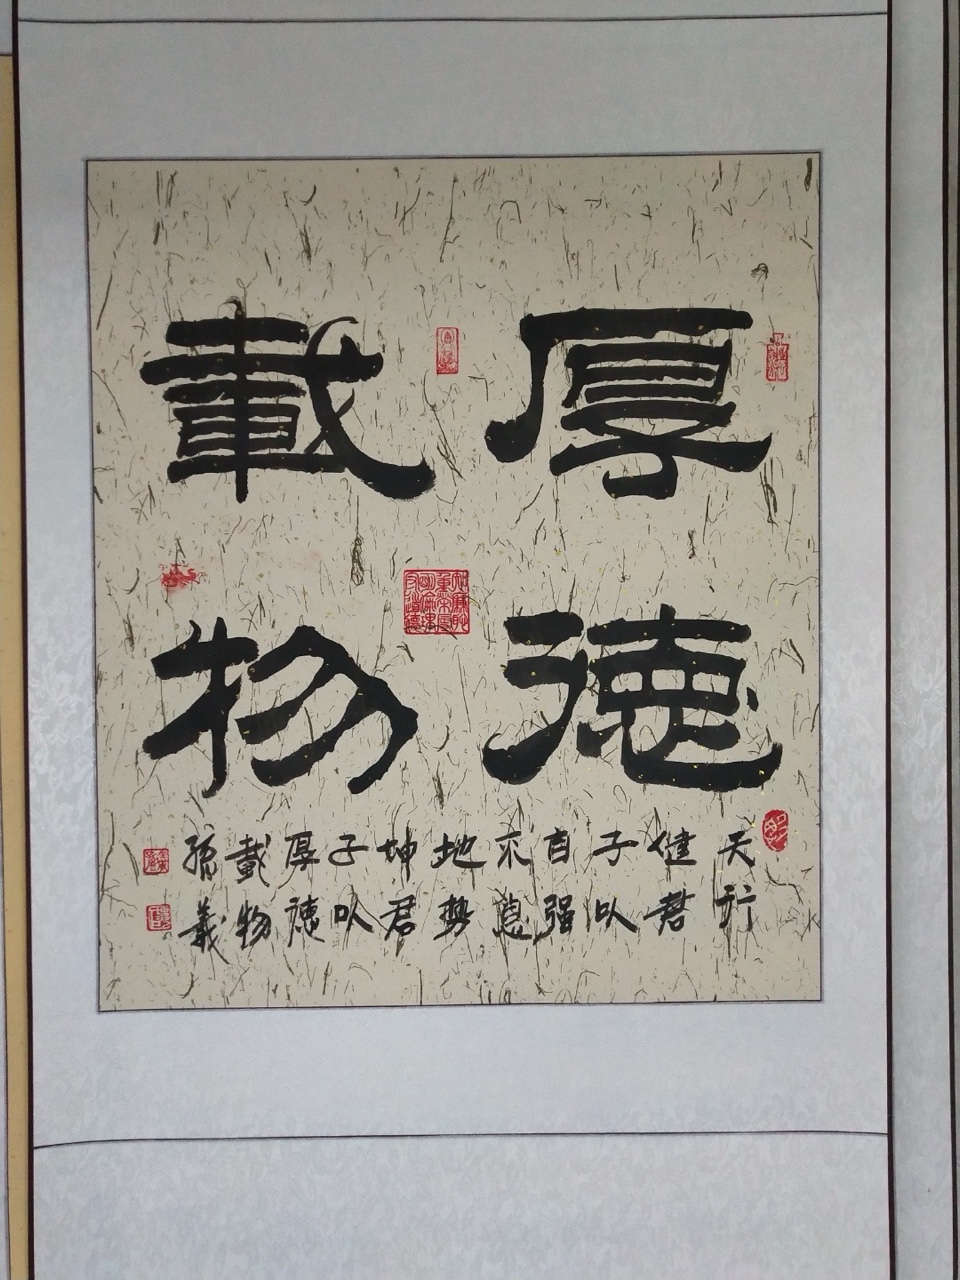 厚徳
載物
天行
健君
子以
自强
不息
地勢
坤君
子以
厚徳
載物
孫義